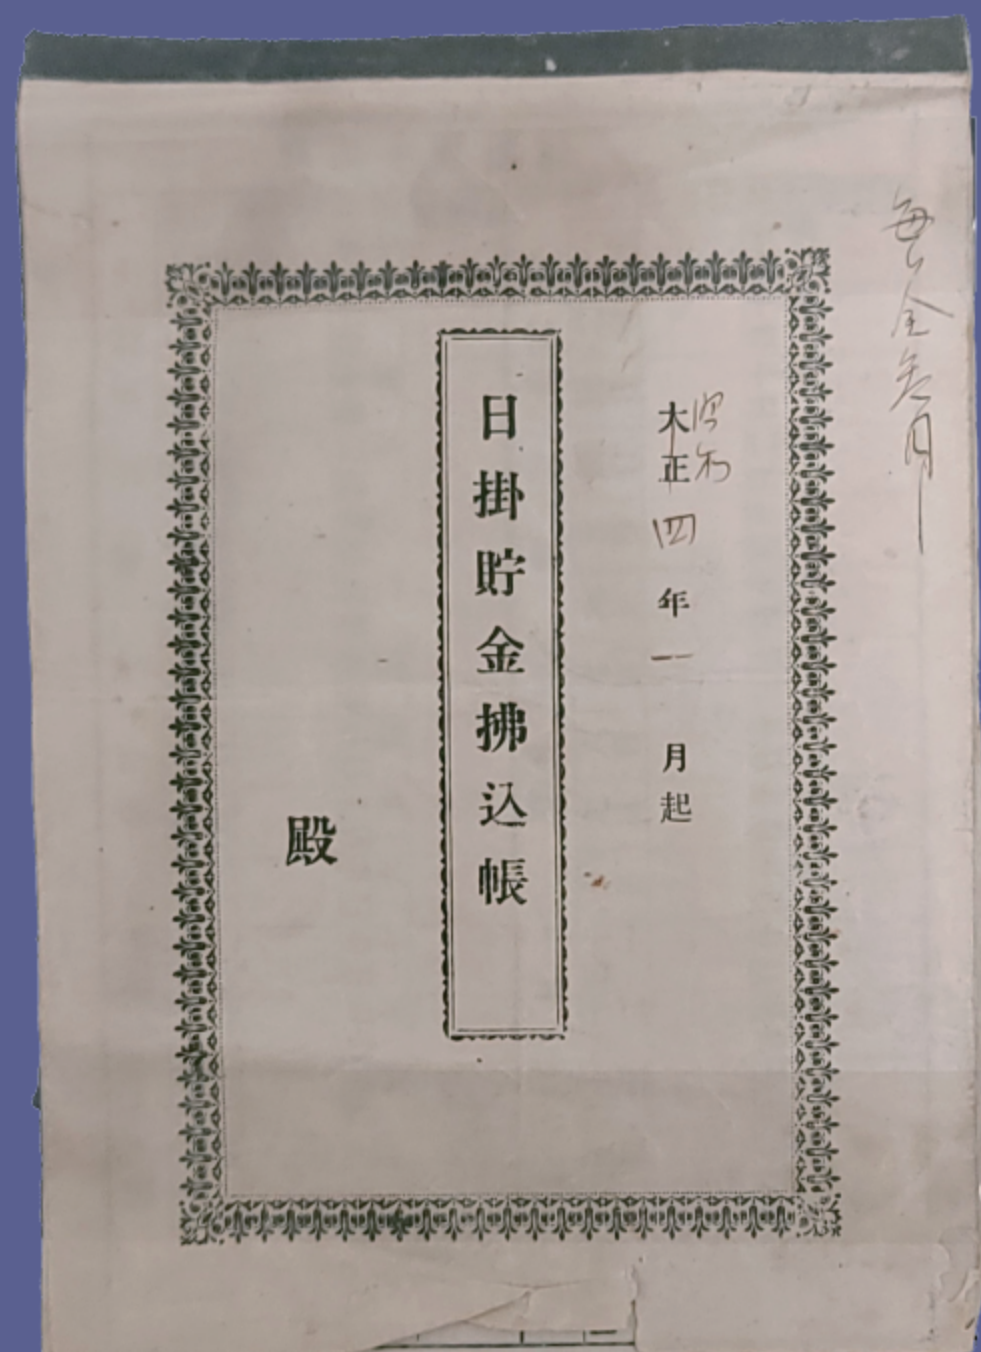 昭和
大正四年一月起
日掛貯金拂込帳
殿